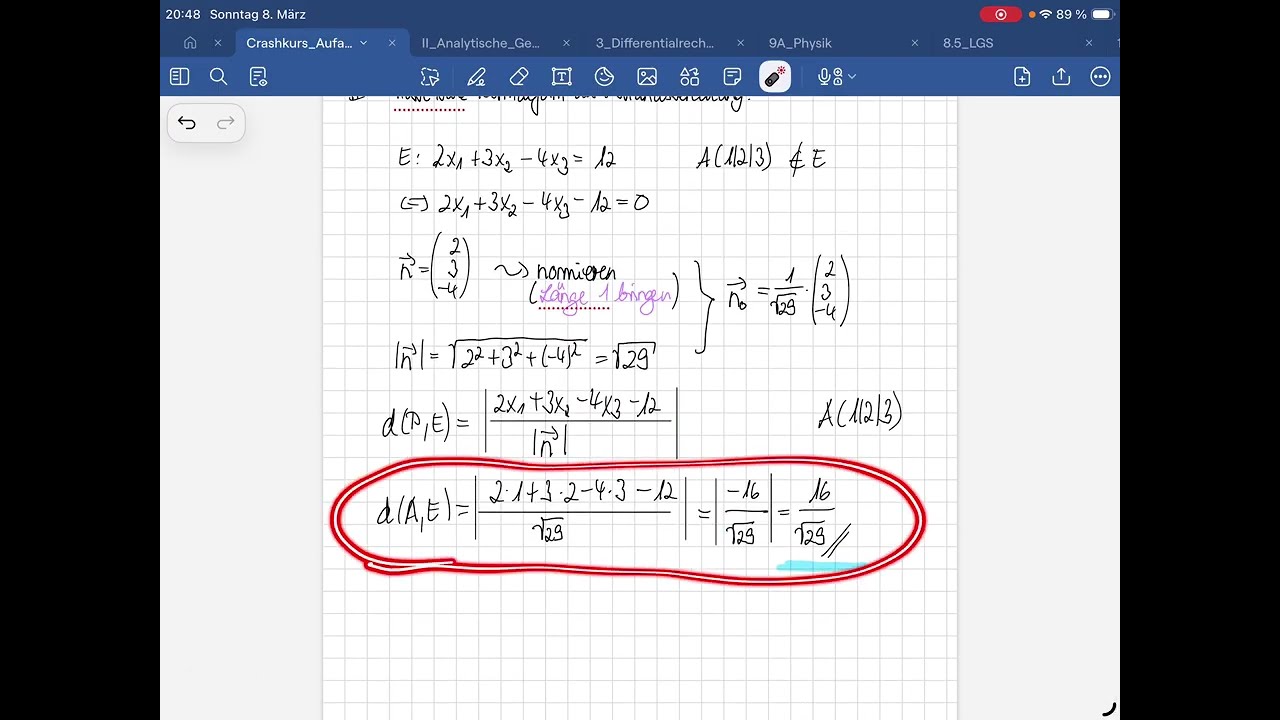 20:48 Sonntag 8. März 89 %
Crashkurs_Aufa... II_Analytische_Ge... 3_Differentialrech... 9A_Physik 8.5_LGS
E: 2x₁ + 3x₂ − 4x₃ = 12 A(1|2|3) ∉ E
⇔ 2x₁ + 3x₂ − 4x₃ − 12 = 0
n⃗ = (2 3 −4) ⇝ normieren
(Länge 1 bringen) } n⃗₀ = 1/√29 · (2 3 −4)
|n⃗| = √(2² + 3² + (−4)²) = √29
d(P,E) = |(2x₁ + 3x₂ − 4x₃ − 12)/|n⃗|| A(1|2|3)
d(A,E) = |(2·1 + 3·2 − 4·3 − 12)/√29| = |−16/√29| = 16/√29